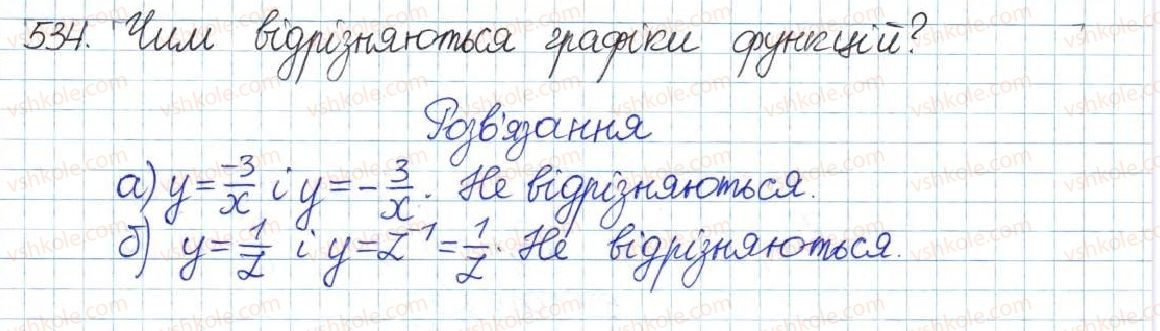 534. Чим відрізняються графіки функцій?
Розв'язання
а) y = -3/x і y = - 3/x. Не відрізняються.
б) y = 1/z і y = z⁻¹ = 1/z. Не відрізняються.